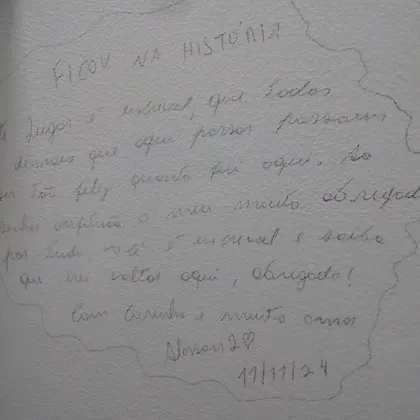 FICOU NA HISTÓRIA
lugar é incrível, que todos
que aqui possas
tão feliz quanto fui aqui. Ao
o meu muito obrigado
por tudo, você é incrível e saiba
que irei voltar aqui, obrigado!
Com carinho e muito amor
♡
11/11/24